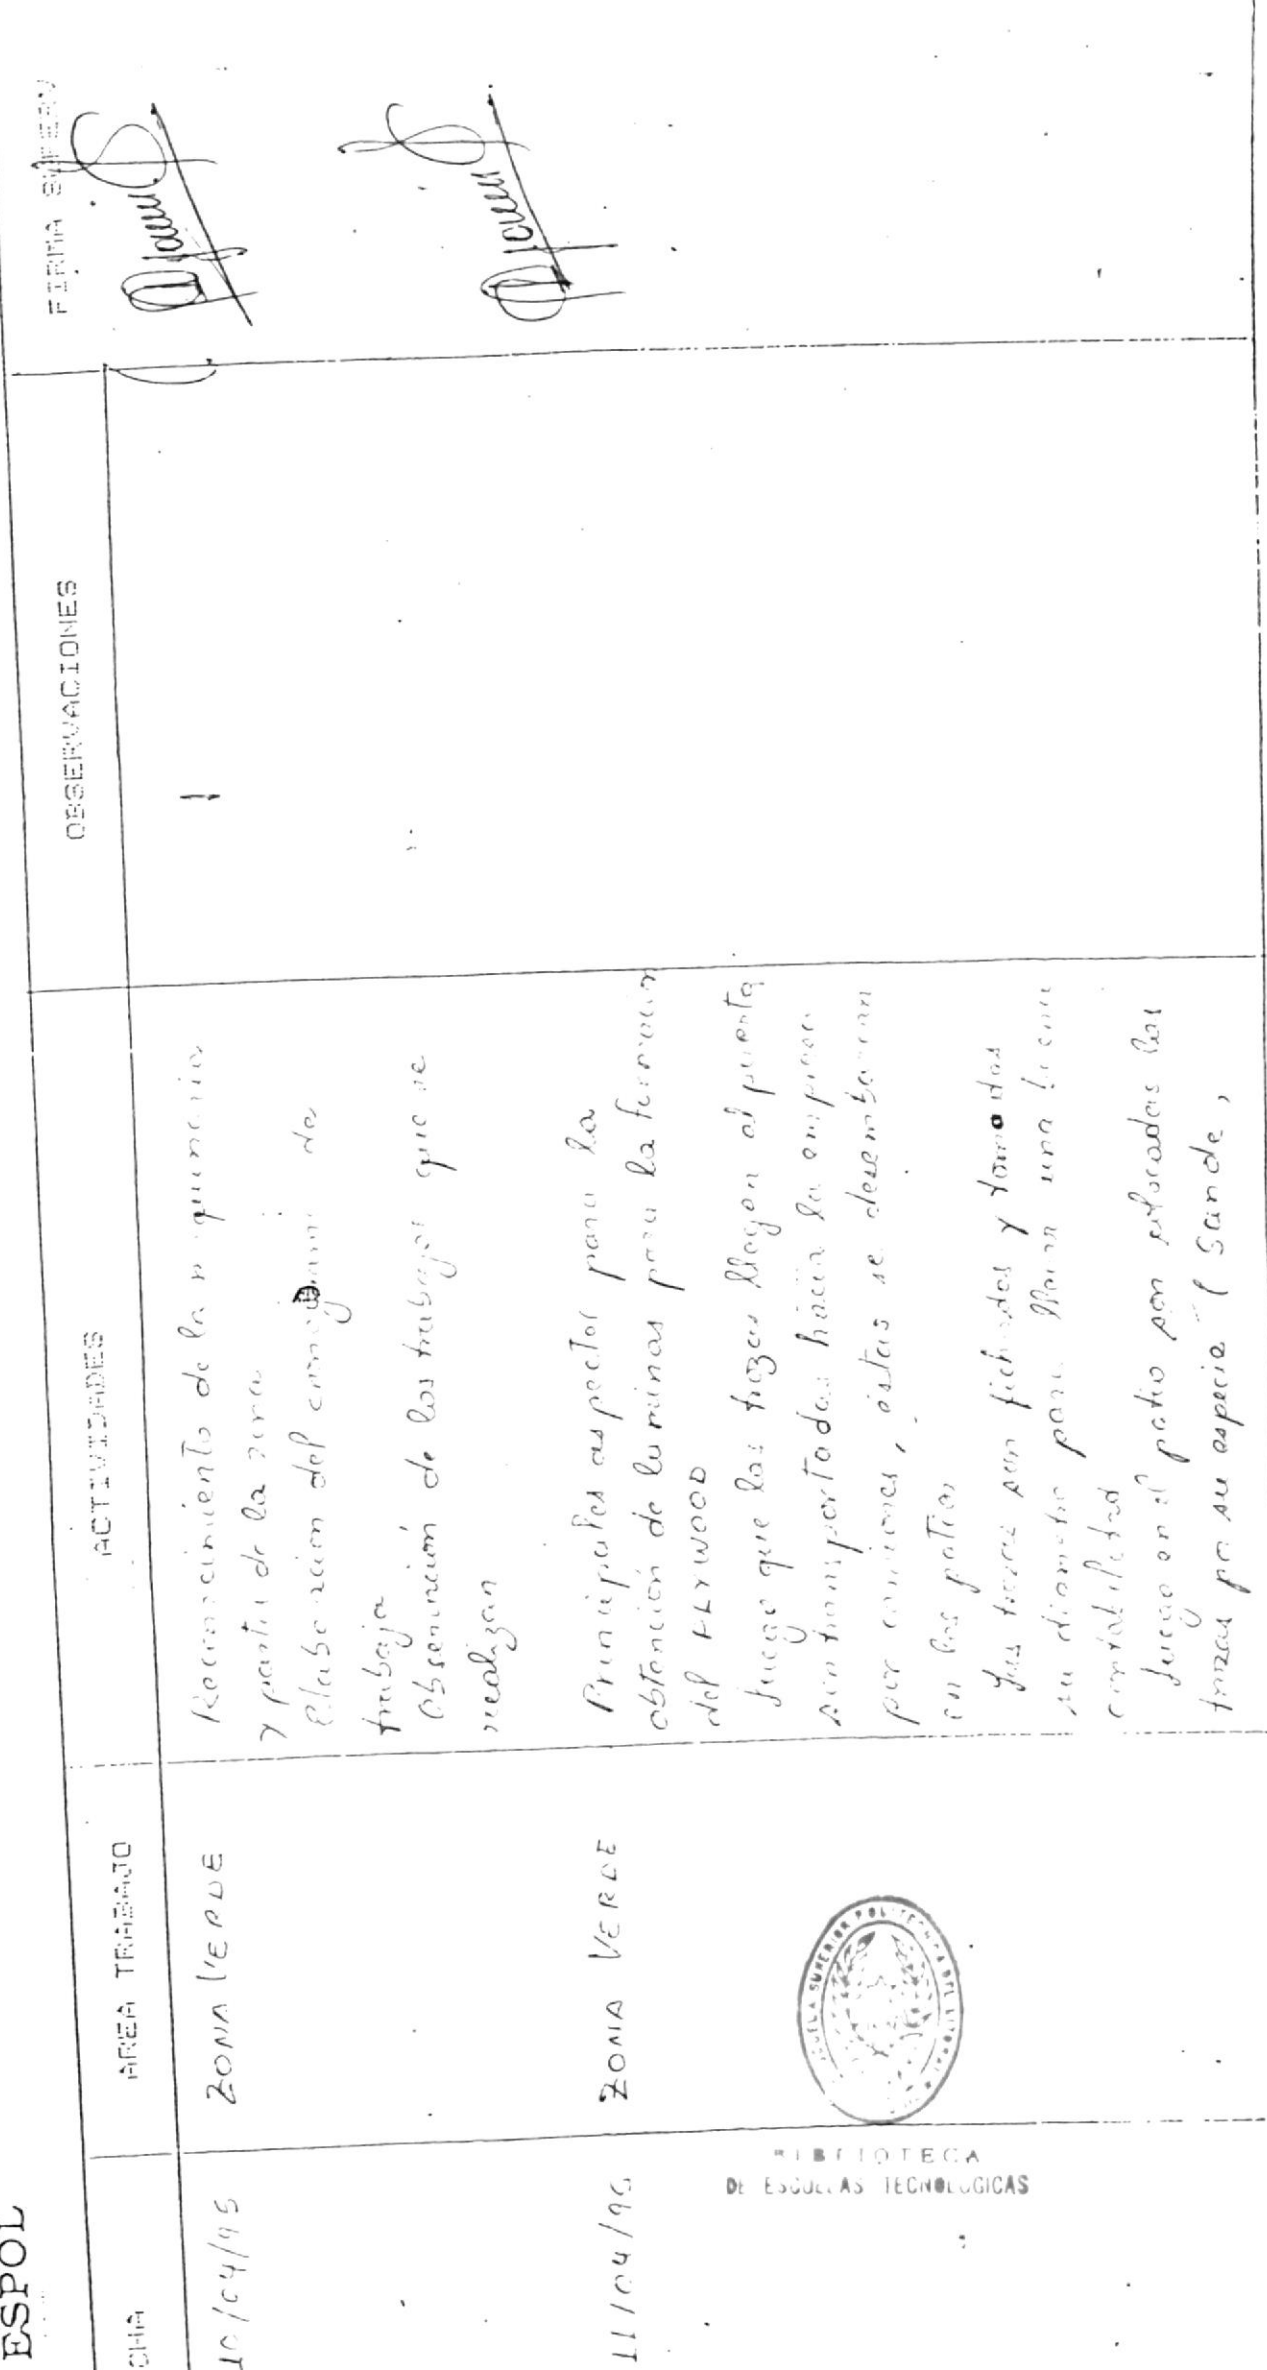 ESPOL
CHA
AREA TRABAJO
ACTIVIDADES
OBSERVACIONES
FIRMA SUPERV
10/04/95
ZONA VERDE
Reconocimiento de la
y parte de la
Elaboracion del de
trabajo
Observación de los trabajos que se
realizan
11/04/95
ZONA VERDE
Principales aspectos para la
obtención de laminas para la formación
del PLYWOOD
Luego que las trozas llegan al puerto
son transportadas hacia la empresa
por camiones, éstas se desembarcan
en los patios
Las trozas son fichadas y tomadas
su diametro para llevar una buena
contabilidad
Luego en el patio son colocadas las
trozas por su especie ( Sande,
ESCUELA SUPERIOR POLITECNICA DEL LITORAL
BIBLIOTECA
DE ESCUELAS TECNOLOGICAS